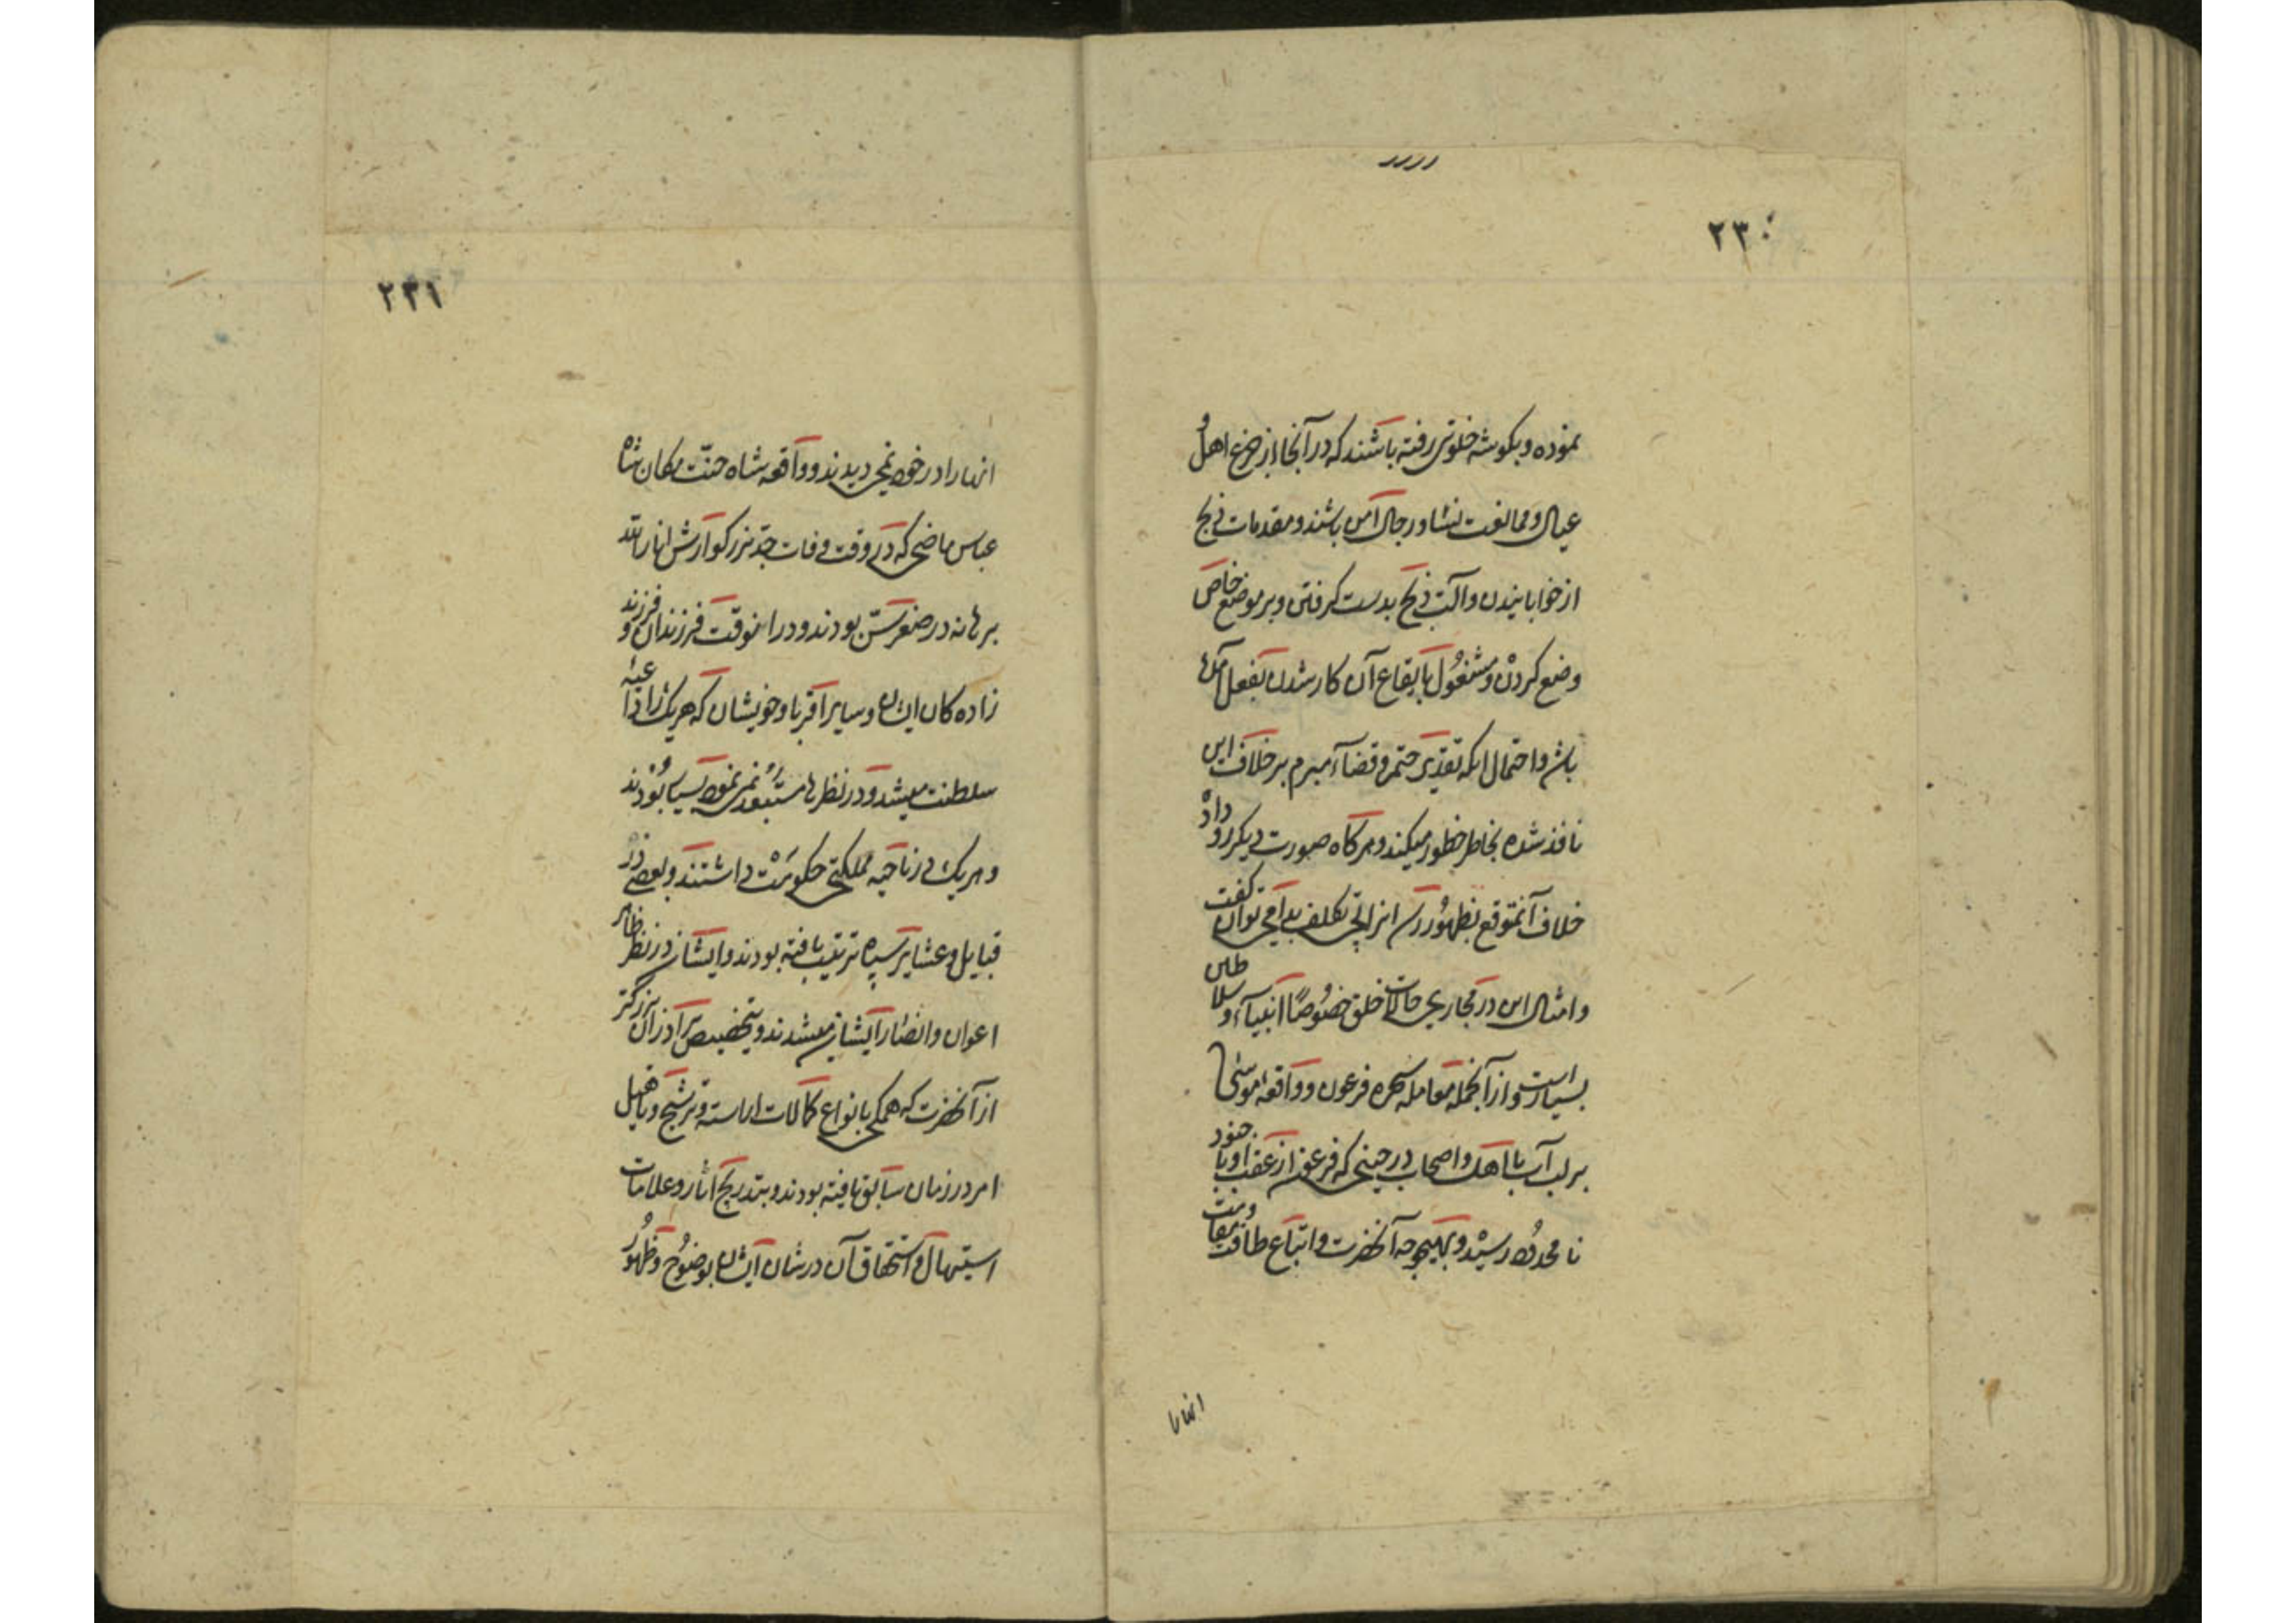 ۲۳۰
نموده و بگوشه خلوتی رفته باشند که در آنجا از جزع اهل و
عیال و ممانعت نسا و رجال آمن باشند و مقدمات ذبح
از خوابانیدن و آلت ذبح بدست گرفتن و بر موضع خاص
وضع کردن و مشغول بایقاع آن کار شدن بفعل آمده
باشد و احتمال اینکه تقدیر حتم و قضاء مبرم بر خلاف این
نافذ شده بخاطر خطور میکند و هرگاه صورت دیگر رو داد
خلاف آنمتوقع بظهور رسد انرا بی تکلف بدا می توان گفت
و امثال این در مجاری حالات خلق خصوصا انبیآء و سلاطین
بسیار است و از آنجمله معامله سحره فرعون و واقعه موسی
بر لب آب با اهل و اصحاب در حینی که فرعون از عقب او با جنود
نا محدود رسید و بهیچوجه آنحضرت و اتباع طاقت مقاومت
۲۳۱
انها را در خود نمی دیدند و واقعه شاه جنّت مکان شاه
عباس ماضی که در وقت وفات جدّ بزرگوارش انار الله
برهانه در صغر سنّ بودند و در انوقت فرزندان و فرزند
زاده کان ایشان و سایر اقربا و خویشان که هر یک را داعیه
سلطنت میشد و در نظرها مستبعد نمی نمود بسیار بودند
و هر یک در ناحیه مملکتی حکومت داشتند و بعضی در
قبایل و عشایر سپاه تربیت یافته بودند و ایشان در نظر ظاهر
اعوان و انصار ایشان میشدند و بتخصیص برادران بزرگتر
از آنحضرت که همگی بانواع کمالات اراسته و ترشیح و تاهیل
امر در زمان سابق یافته بودند و بتدریج اثار و علامات
استیهال و استحقاق آن در شان ایشان بوضوح و ظهور